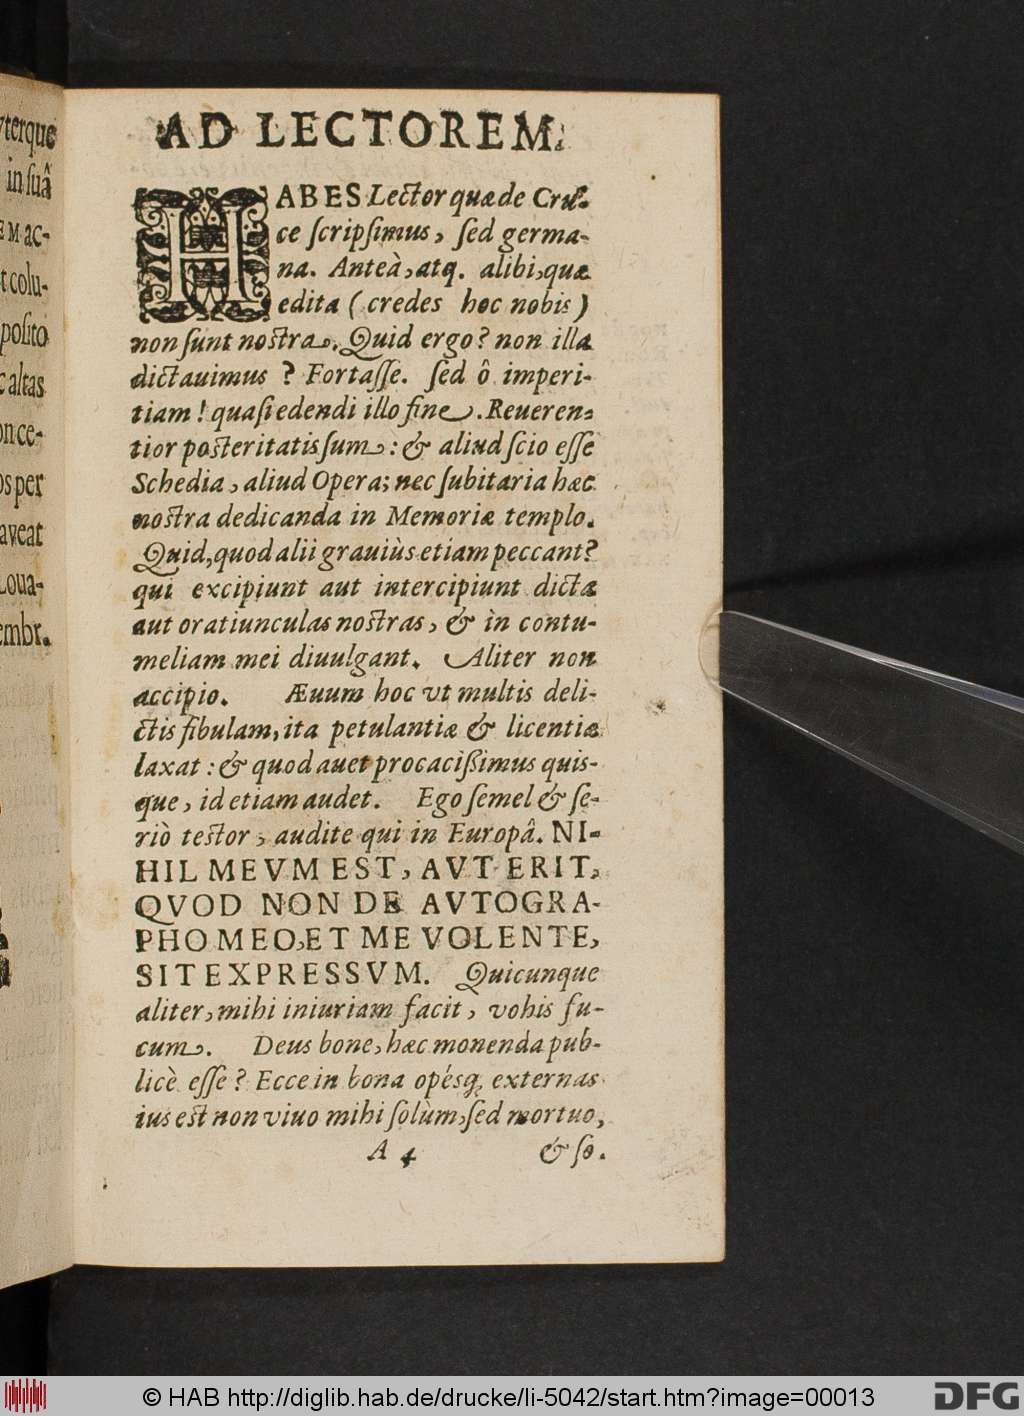 vterque
in suâ
EM ac-
t colu-
posito
c altas
once-
os per
aveat
Loua-
embr.
AD LECTOREM.
HABES Lector quæ de Cru-
ce scripsimus, sed germa-
na. Anteà, atq. alibi, quæ
edita (credes hoc nobis)
non sunt nostra. Quid ergo? non illa
dictauimus? Fortasse. sed ô imperi-
tiam! quasi edendi illo fine. Reueren-
tior posteritatis sum: & aliud scio esse
Schedia, aliud Opera; nec subitaria hæc
nostra dedicanda in Memoriæ templo.
Quid, quod alii grauiùs etiam peccant?
qui excipiunt aut intercipiunt dicta
aut oratiunculas nostras, & in contu-
meliam mei diuulgant. Aliter non
accipio. Æuum hoc vt multis deli-
ctis fibulam, ita petulantiæ & licentiæ
laxat: & quod auet procacissimus quis-
que, id etiam audet. Ego semel & se-
riò testor, audite qui in Europâ. NI-
HIL MEVM EST, AVT ERIT,
QVOD NON DE AVTOGRA-
PHO MEO, ET ME VOLENTE,
SIT EXPRESSVM. Quicunque
aliter, mihi iniuriam facit, vobis fu-
cum. Deus bone, hæc monenda pub-
licè esse? Ecce in bona opésq; externas
ius est non viuo mihi solùm, sed mortuo,
A 4 & so.
© HAB http://diglib.hab.de/drucke/li-5042/start.htm?image=00013
DFG